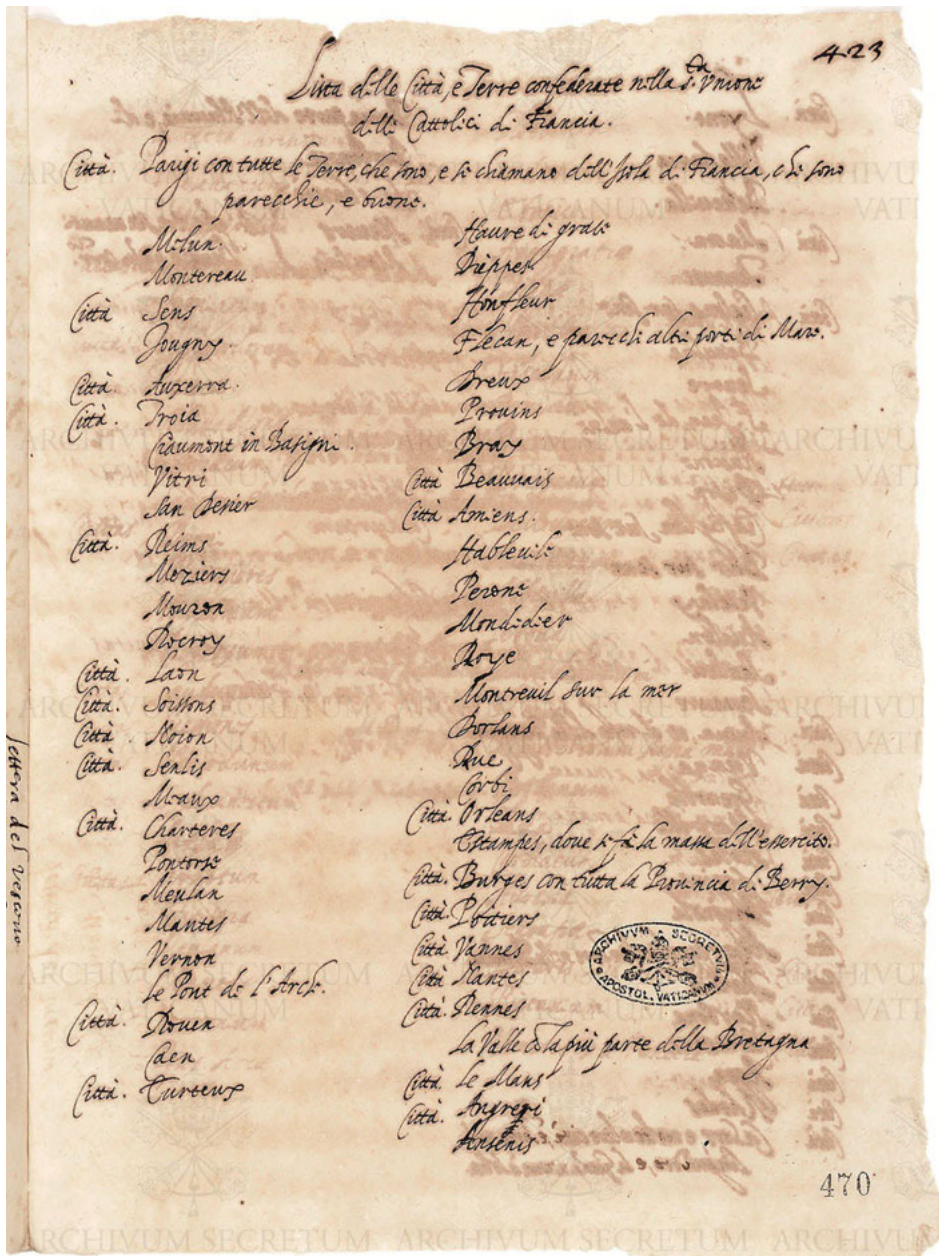 423
Lista delle Città, e Terre confederate nella S.ta Unione
delli Cattolici di Francia.
Città. Parigi con tutte le Terre, che sono, e se chiamano dell'Isola di Francia, che sono
parecchie, e buone.
Melun.
Montereau
Città Sens
Jougny.
Città. Auxerra.
Città. Troia
Ciaumont in Basigni.
Vitri
San Desier
Città. Reims
Meziers
Mouzon
Rocroy
Città. Laon
Città. Soissons
Città Noion
Città. Senlis
Meaux
Città. Charteres
Pontorse
Meulan
Mantes
Vernon
le Pont de l'Arche.
Città. Roven
Caen
Città. Turteux
Havre di grate
Dieppes
Honfleur
Flecan, e parecchi altri porti di Mare.
Dreux
Provins
Bray
Città Beauvais
Città Amiens.
Hableville
Perone
Mondidier
Roye
Montreuil sur la mer
Dorlans
Rue
Corbi
Città. Orleans
Estampes, dove se fa la massa dell'essercito.
Città. Burges con tutta la Provincia di Berry.
Città. Poitiers
Città Vannes
Città Nantes
Città. Rennes
La Valle et la più parte della Bretagna
Città. Le Mans
Città. Angreri
Ansenis
lettera del Vescovo
ARCHIVVM SECRETVM APOSTOL. VATICANVM
470
ARCHIVUM SECRETUM
VATICANUM